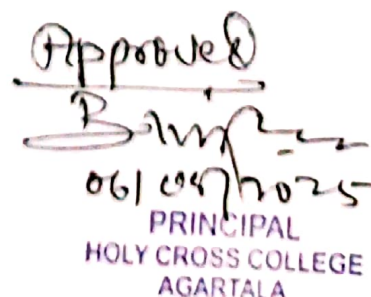 Approved
06/08/2025
PRINCIPAL
HOLY CROSS COLLEGE
AGARTALA